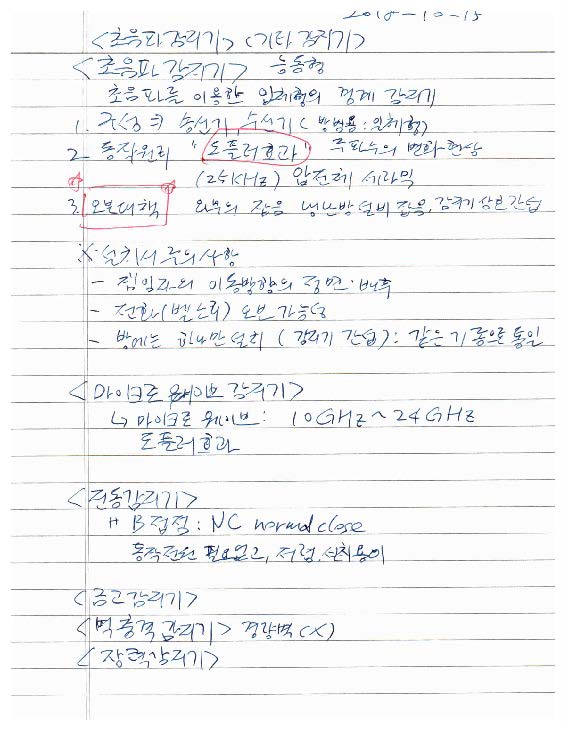 2018-10-15
<초음파감지기> (기타감지기)
<초음파 감지기> 능동형
초음파를 이용한 입체형의 경계 감지기
1. 구성 송신기, 수신기 (방범용: 입체형)
2. 동작원리 "도플러효과" 주파수의 변화현상
(25KHz) 압전체 세라믹
3. 오보대책 외부의 잡음 냉난방설비 잡음, 감지기 상호간섭
※ 설치시 주의사항
- 침입자의 이동방향의 정면·배후
- 전화(벨소리) 오보 가능성
- 방에는 하나만 설치 (감지기 간섭): 같은 기종으로 통일
<마이크로 웨이브 감지기>
↳ 마이크로 웨이브: 10GHz ~ 24GHz
도플러효과
<진동감지기>
B접점: NC normal close
동작전원 필요없고, 저렴, 설치용이
<금고감지기>
<벽충격감지기> 경량벽(X)
<장력감지기>